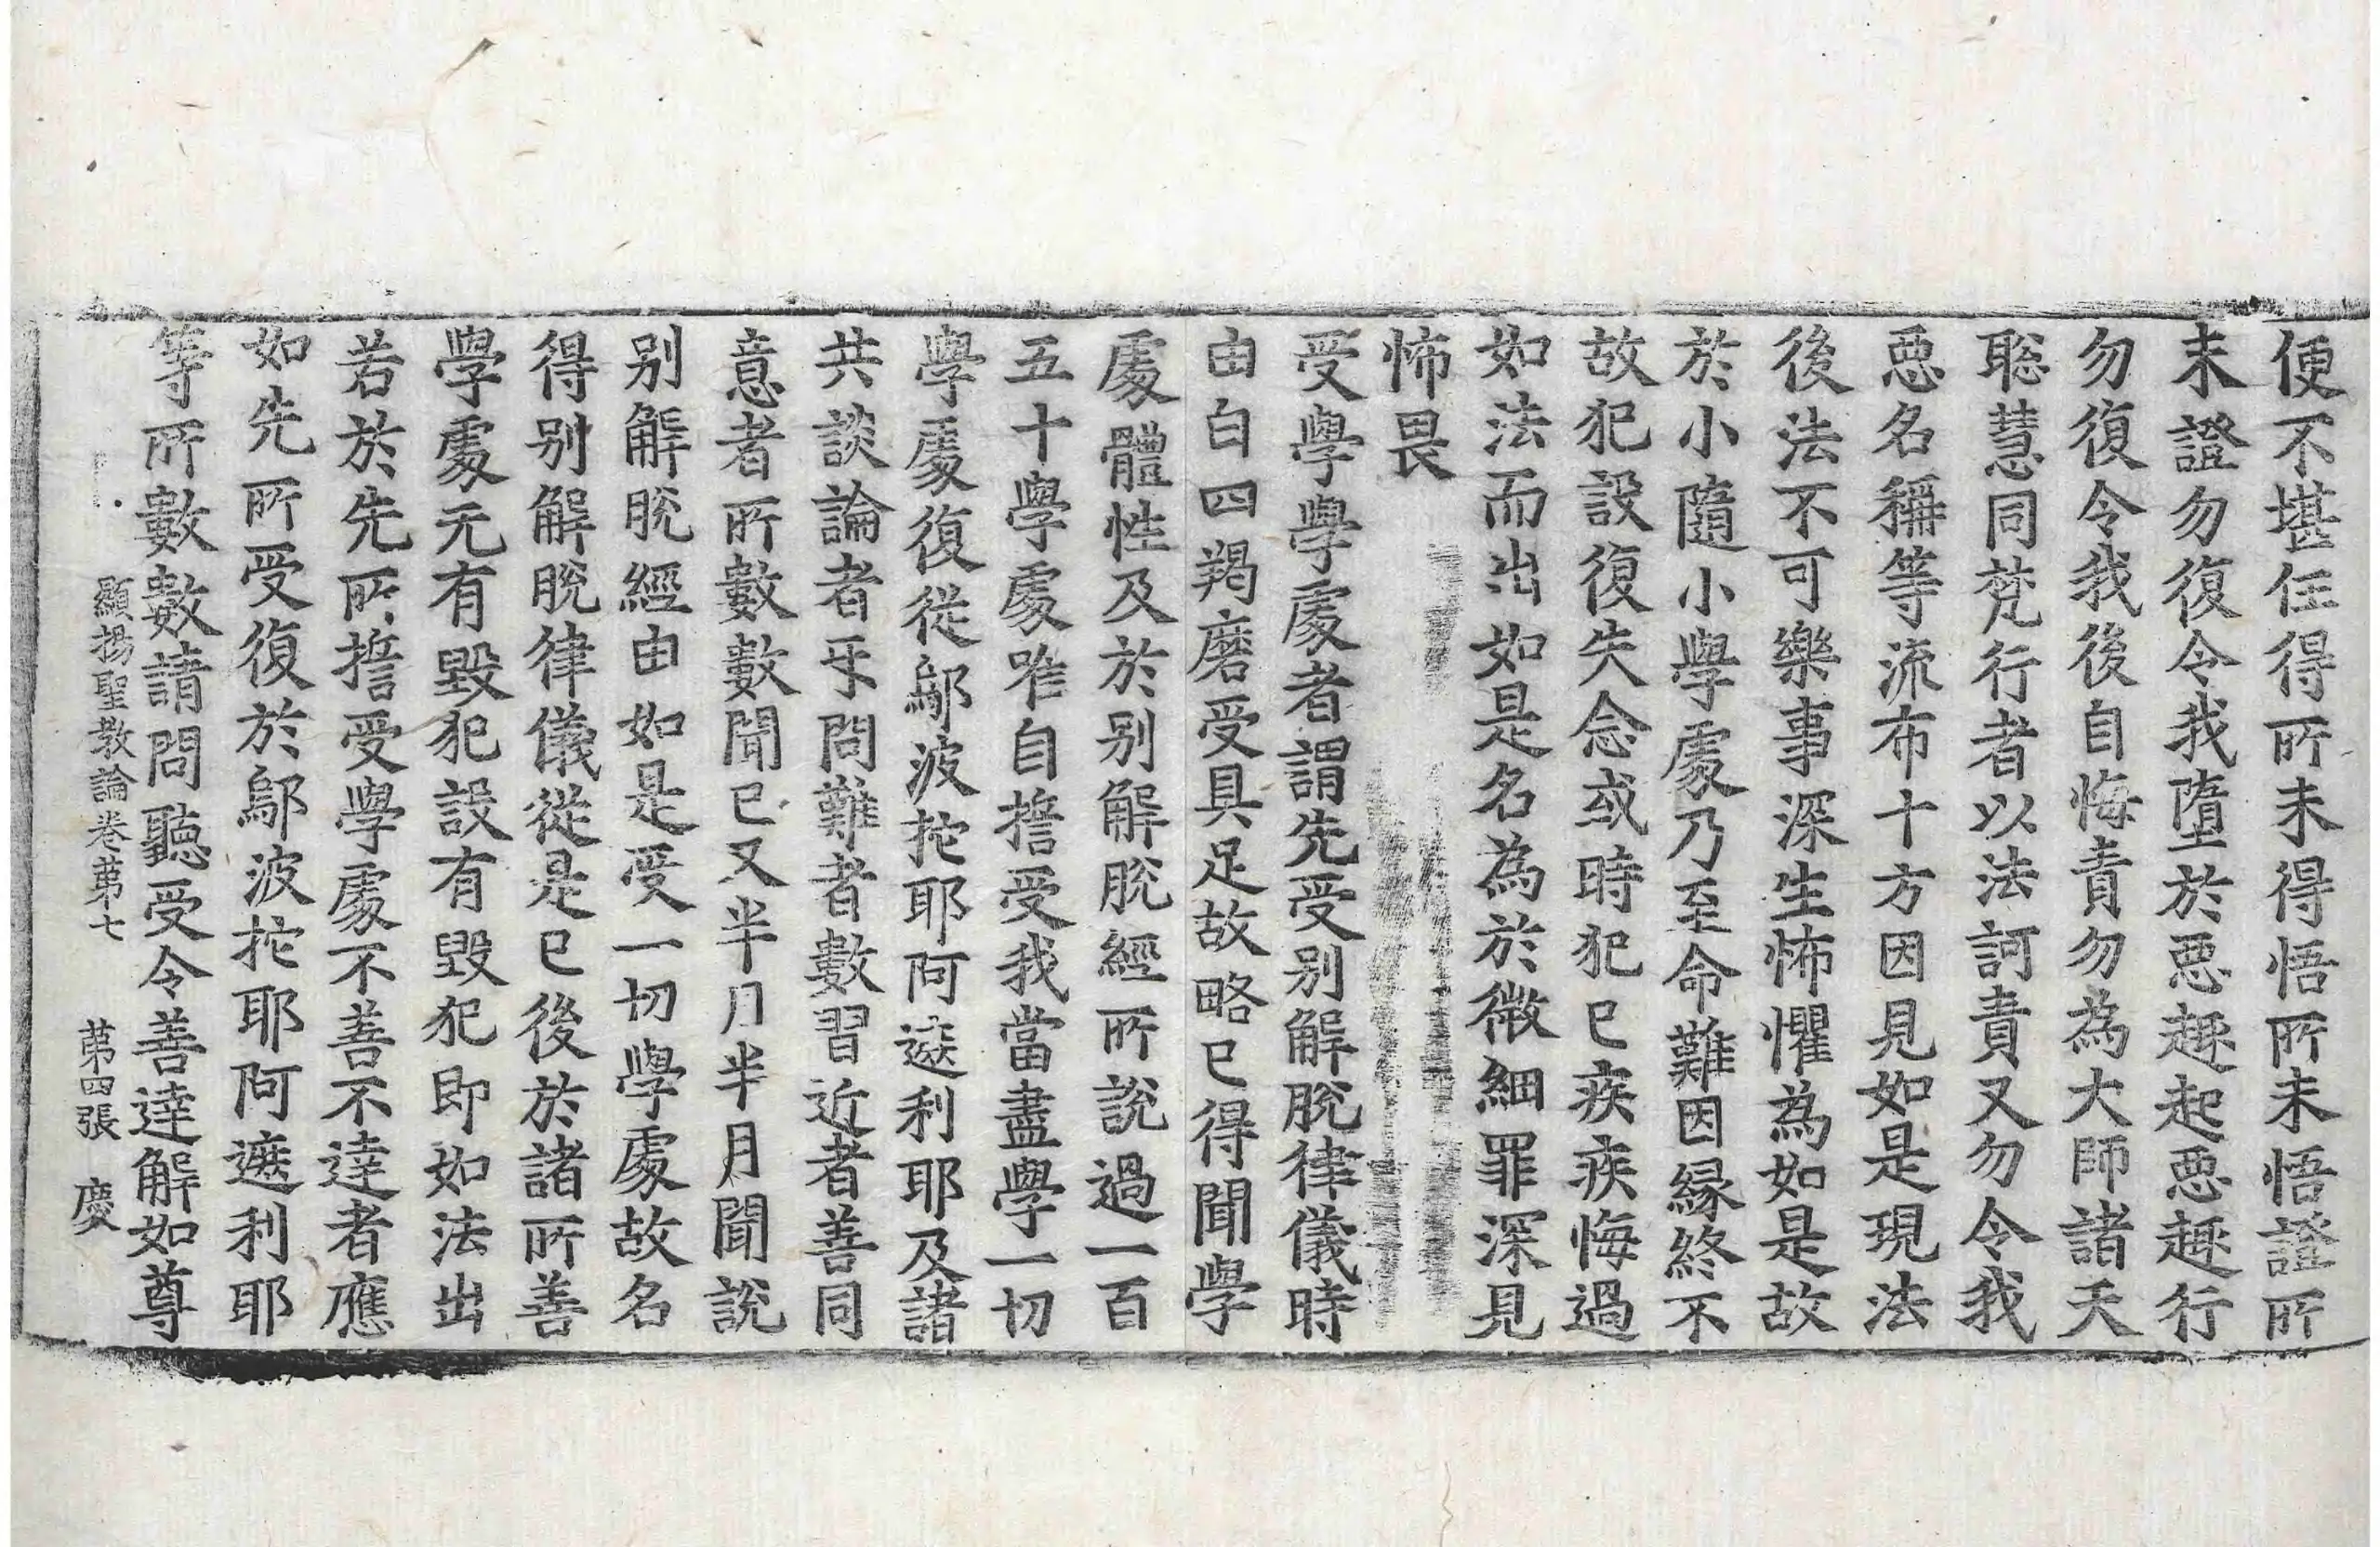 便不堪任得所未得悟所未悟證所
未證勿復令我墮於惡趣起惡趣行
勿復令我後自悔責勿為大師諸天
聡慧同梵行者以法訶責又勿令我
惡名稱等流布十方因見如是現法
後法不可樂事深生怖懼為如是故
於小隨小學處乃至命難因緣終不
故犯設復失念或時犯已疾疾悔過
如法而出如是名為於微細罪深見
怖畏
受學學處者謂先受別解脫律儀時
由白四羯磨受具足故略已得聞學
處體性及於別解脫經所說過一百
五十學處唯自擔受我當盡學一切
學處復從鄔波拕耶阿遮利耶及諸
共談論者乎問難者數習近者善同
意者所數數聞已又半月半月聞說
別解脫經由如是受一切學處故名
得別解脫律儀從是已後於諸所善
學處无有毀犯設有毀犯即如法出
若於先所擔受學處不善不達者應
如先所受復於鄔波拕耶阿遮利耶
等所數數請問聽受令善達解如尊
顯揚聖教論卷苐七　苐四張　慶